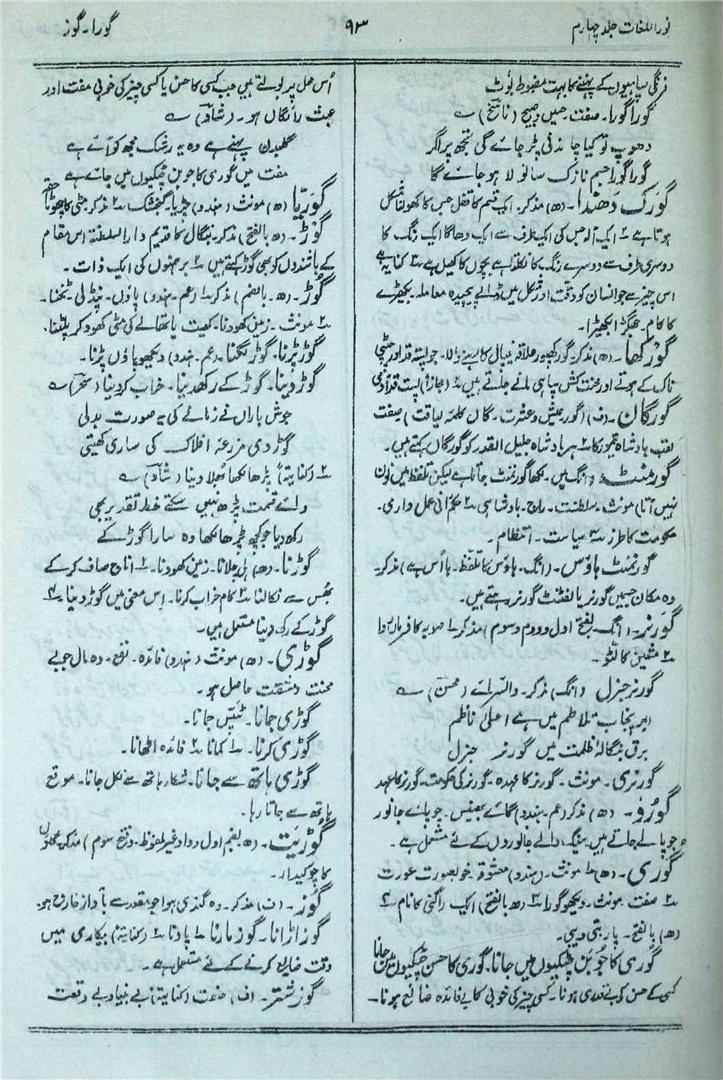 نوراللغات جلد چہارم
۹۳
گورا۔ گوز
فرنگی سپاہیوں کے پہننے کا بہت مضبوط بوٹ
گورا گورا۔ صفت۔ حسین۔ صبیح (ناسخ) ؎
دھوپ تو کیا چاندنی پڑ جائے گی تجھ پر اگر
گورا گورا جسم نازک سانولا ہو جائے گا
گورکھ دھندا۔ (ھ) مذکر۔ ایک قسم کا قفل جس کا کھولنا مشکل
ہوتا ہے ۲ ایک آلہ جس کی ایک طرف سے ایک دھاگا ایک رنگ کا
دوسری طرف سے دوسرے رنگ کا نکلتا ہے بچوں کا کھیل ہے ۳ کنایہ ہے
اس چیز سے جو انسان کو دقت اور مشکل میں ڈالے پیچیدہ معاملہ۔ بکھیڑے
کا کام۔ جھگڑا بکھیڑا۔
گورکھا۔ (ھ) مذکر۔ گورکھپور علاقہ نیپال کا رہنے والا۔ جو پستہ قد اور چپٹی
ناک کے ہوتے اور محنت کش سپاہی مانے جاتے ہیں ۲ (مجازاً) پست قد آدمی
گورگان۔ (ف) (گور عیش و عشرت۔ گان کلمہ لیاقت) صفت
لقب بادشاہ تیمور کا ۲ ہر بادشاہ جلیل القدر کو گورگان کہتے ہیں۔
گورنمنٹ۔ (انگ میں۔ لکھا گورنمنٹ جاتا ہے لیکن تلفظ میں نون
نہیں آتا) مونث۔ سلطنت۔ راج۔ بادشاہی ۲ حکمرانی عمل داری۔
حکومت کا طرز ۳ سیاست۔ انتظام۔
گورنمنٹ ہاؤس۔ (انگ۔ ہاؤس کا تلفظ۔ ہاأس ہے) مذکر۔
وہ مکان جس میں گورنر یا لفٹنٹ گورنر رہتے ہیں۔
گورنر۔ (انگ۔ بفتح اول و دوم و سوم) مذکر ۱ صوبہ کا فرماں روا
۲ مشین کا لٹو۔
گورنر جنرل (انگ) مذکر۔ وائسرائے (محسن) ؎
ابر پنجاب تلاطم میں ہے اعلیٰ ناظم
برق بنگالہ ظلمت میں گورنر جنرل
گورنری۔ مونث۔ گورنر کا عہدہ۔ گورنر کی حکومت۔ گورنر کا عہد
گورو۔ (ھ) مذکر (عم۔ ہندو) گائے بھینس۔ چوپائے جانور
جو پالے جاتے ہیں سینگ والے جانوروں کے لئے مستعمل ہے۔
گوری۔ (ھ) ۱ مونث۔ (ہندو) معشوقہ۔ خوبصورت عورت
۲ صفت مونث۔ دیکھو گورا ۳ (ھ بالفتح) ایک راگنی کا نام ۴
(ھ) بالفتح۔ پاربتی دیبی۔
گوری کا جوبن چٹکیوں میں جانا۔ گوری کا حسن چٹکیوں میں جانا
کسی کے حسن کی بے قدری ہونا۔ کسی چیز کی خوبی کا بے فائدہ ضائع ہونا۔
اُس محل پر بولتے ہیں جب کسی کا حسن یا کسی چیز کی خوبی مفت اور
عبث رائگاں ہو۔ (شاد) ؎
گلبدن پہنے ہے وہ یہ رشک مجھ کو آئے ہے
مفت میں گوری کا جوبن چٹکیوں میں جائے ہے
گوریا (ھ) مونث (ہندو) چڑیا۔ گنجشک ۲ مذکر۔ مٹی کا چھوٹا حقہ
گوڑ۔ (ھ بالفتح) مذکر۔ بنگال کا قدیم دارالسلطنت اس مقام
کے باشندوں کو بھی گوڑ کہتے ہیں ۲ برہمنوں کی ایک ذات۔
گوڑ۔ (ھ۔ بالضم) مذکر ۱ (عم۔ ہندو) پاؤں۔ پنڈلی ٹخنا۔
۲ مونث۔ زمین کھودنا۔ کھیت یا تھالے کی مٹی کھود کر پلٹنا۔
گوڑ پڑنا۔ گوڑ لگنا۔ (عم۔ ہندو) دیکھو پاؤں پڑنا۔
گوڑ دینا۔ گوڑ کے رکھ دینا۔ خراب کر دینا (سحر) ؎
جوش باراں نے زمانے کی یہ صورت بدلی
گوڑ دی مزرعۂ افلاک کی ساری کھیتی
۲ (کنایۃً) پڑھا لکھا بھلا دینا (شاد) ؎
وائے قسمت پڑھ نہیں سکتے خط تقدیر بھی
رکھ دیا جو کچھ پڑھا لکھا وہ سارا گوڑ کے
گوڑنا۔ (ھ) ہل چلانا۔ زمین کھودنا۔ ۲ اناج صاف کر کے
بھس سے نکالنا ۳ کام خراب کرنا۔ اس معنی میں گوڑ دینا ۴
گوڑ کے رکھ دینا مستعمل ہیں۔
گوڑی۔ (ھ) مونث (ہندو) فائدہ۔ نفع۔ وہ مال جو بے
محنت و مشقت حاصل ہو۔
گوڑی جانا۔ ٹیس جانا۔
گوڑی کرنا۔ ۱ کمانا ۲ فائدہ اٹھانا۔
گوڑی ہاتھ سے جانا۔ شکار ہاتھ سے نکل جانا۔ موقع
ہاتھ سے جاتا رہا۔
گوڑیت۔ (ھ بضم اول و واو غیر ملفوظ۔ و فتح سوم) مذکر۔
کا چوکیدار۔
گوز۔ (ف) مذکر۔ وہ گندی ہوا جو مقعد سے با آواز خارج ہو۔
گوز اڑانا۔ گوز مارنا ۱ پادنا ۲ (کنایۃً) بیکاری میں
وقت ضائع کرنے کے لئے مستعمل ہے۔
گوز شتر۔ (ف) صفت (کنایۃً) بے بنیاد بے وقعت